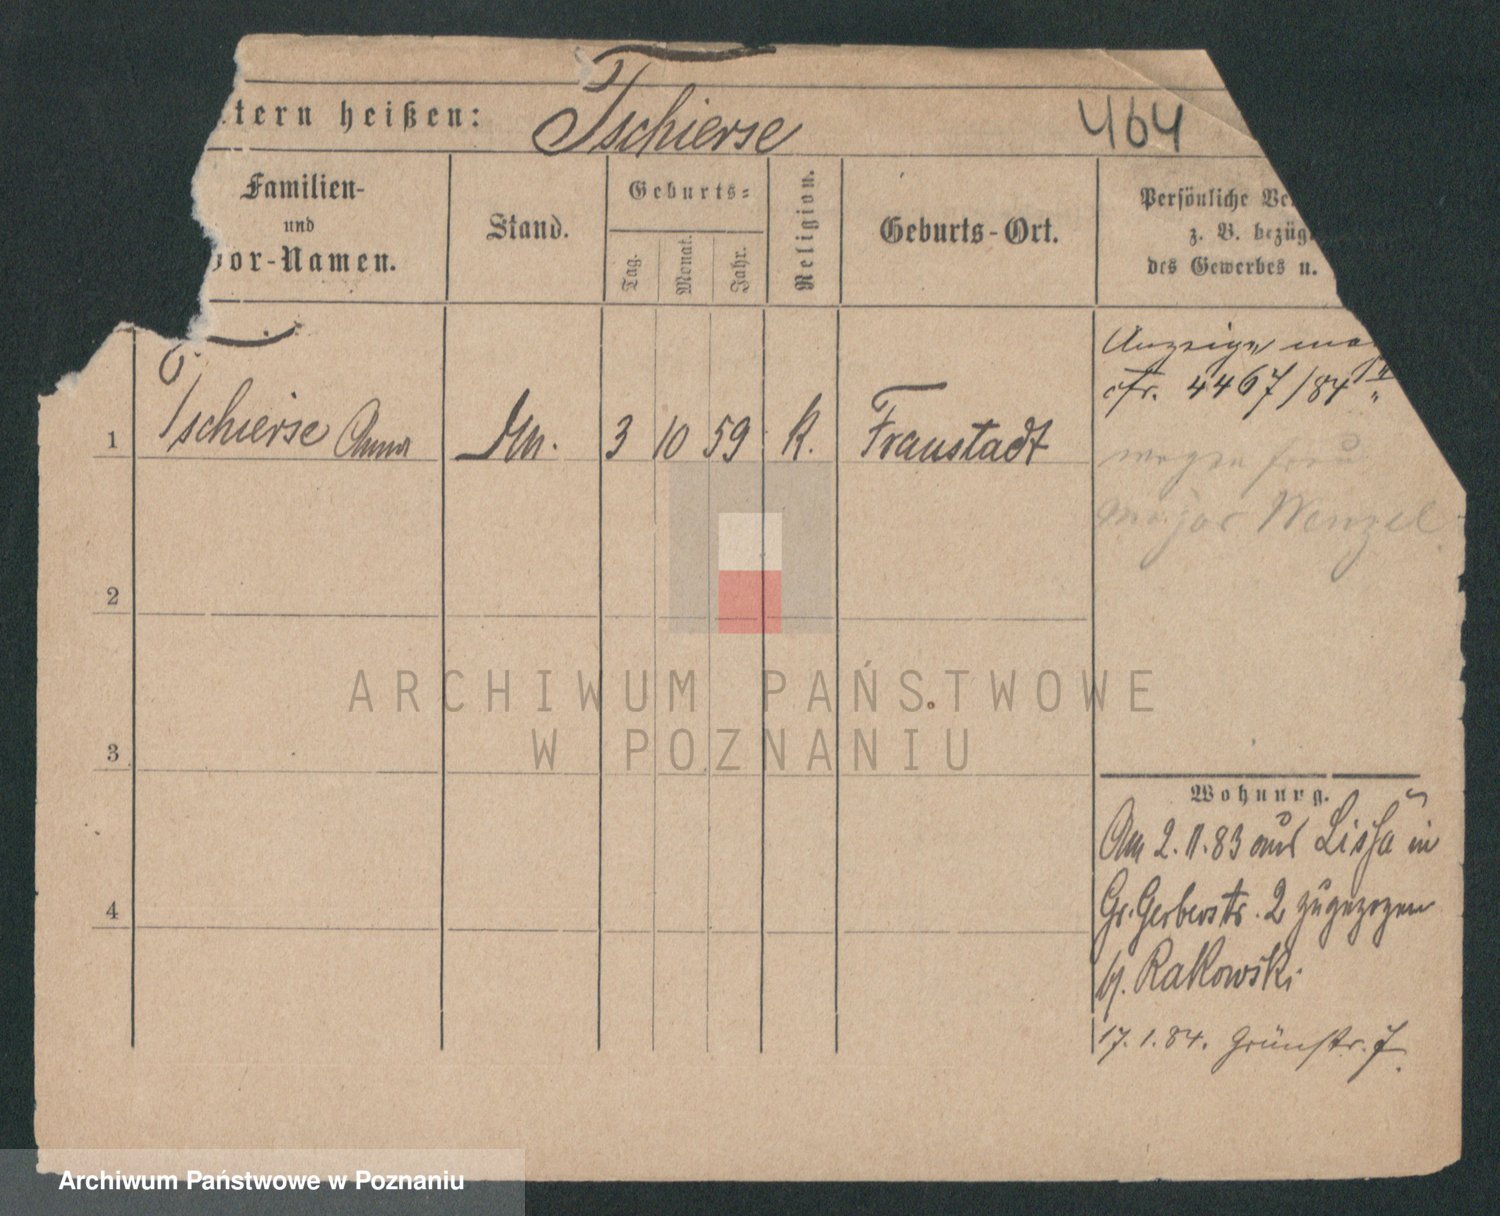 tern heißen: Tschierse 464
Familien-
und
Vor-Namen.
Stand.
Geburts-
Tag.
Monat.
Jahr.
Religion.
Geburts-Ort.
Persönliche Ve
z. B. bezüg
des Gewerbes u.
1 Tschierse Anna 3 10 59 k. Fraustadt
4467/84
wegen Frau
major Wenzel
2
3
4
Wohnung.
Am 2.11.83 aus Lissa in
Gr. Gerberstr. 2 zugezogen
b/. Rakowski
17.1.84. Grünstr. 7.
ARCHIWUM PAŃSTWOWE
W POZNANIU
Archiwum Państwowe w Poznaniu